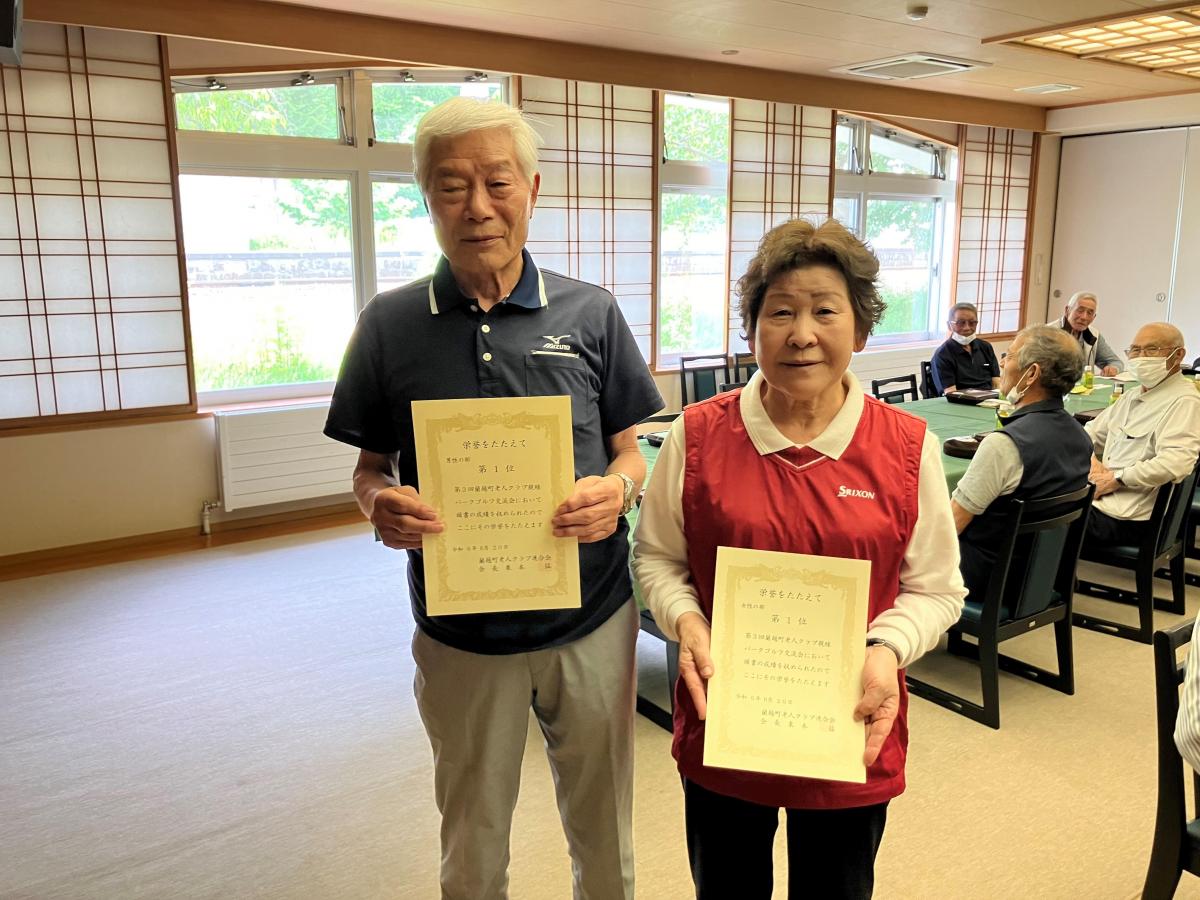 MIZUNO
栄誉をたたえて
男性の部
第1位
第3回蘭越町老人クラブ親睦
パークゴルフ交流会において
頭書の成績を収められたので
ここにその栄誉をたたえます
令和6年6月20日
蘭越町老人クラブ連合会
会長
SRIXON
栄誉をたたえて
女性の部
第1位
第3回蘭越町老人クラブ親睦
パークゴルフ交流会において
頭書の成績を収められたので
ここにその栄誉をたたえます
令和6年6月20日
蘭越町老人クラブ連合会
会長